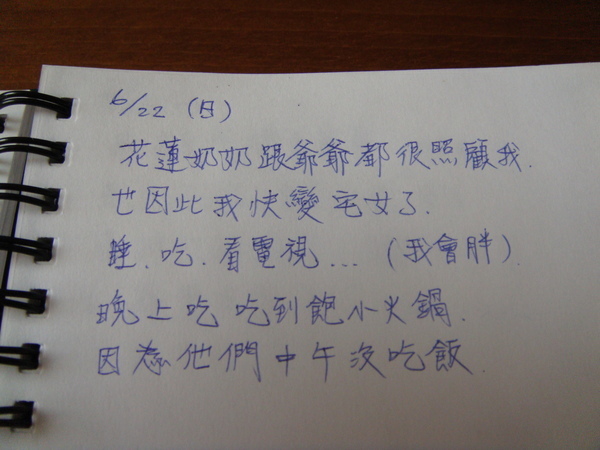 6/22 (日)
花蓮奶奶跟爺爺都很照顧我.
也因此我快變宅女了.
睡.吃.看電視... (我會胖).
晚上吃吃到飽小火鍋.
因為他們中午沒吃飯.